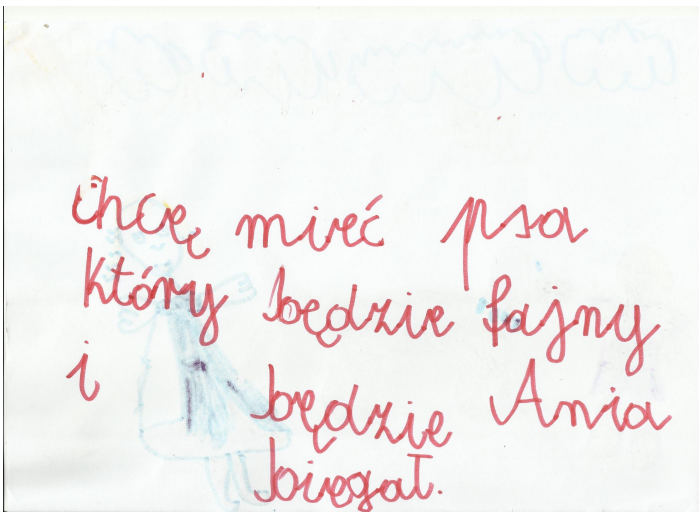 Chcę mieć psa
który będzie fajny
i będzie Ania
biegał.